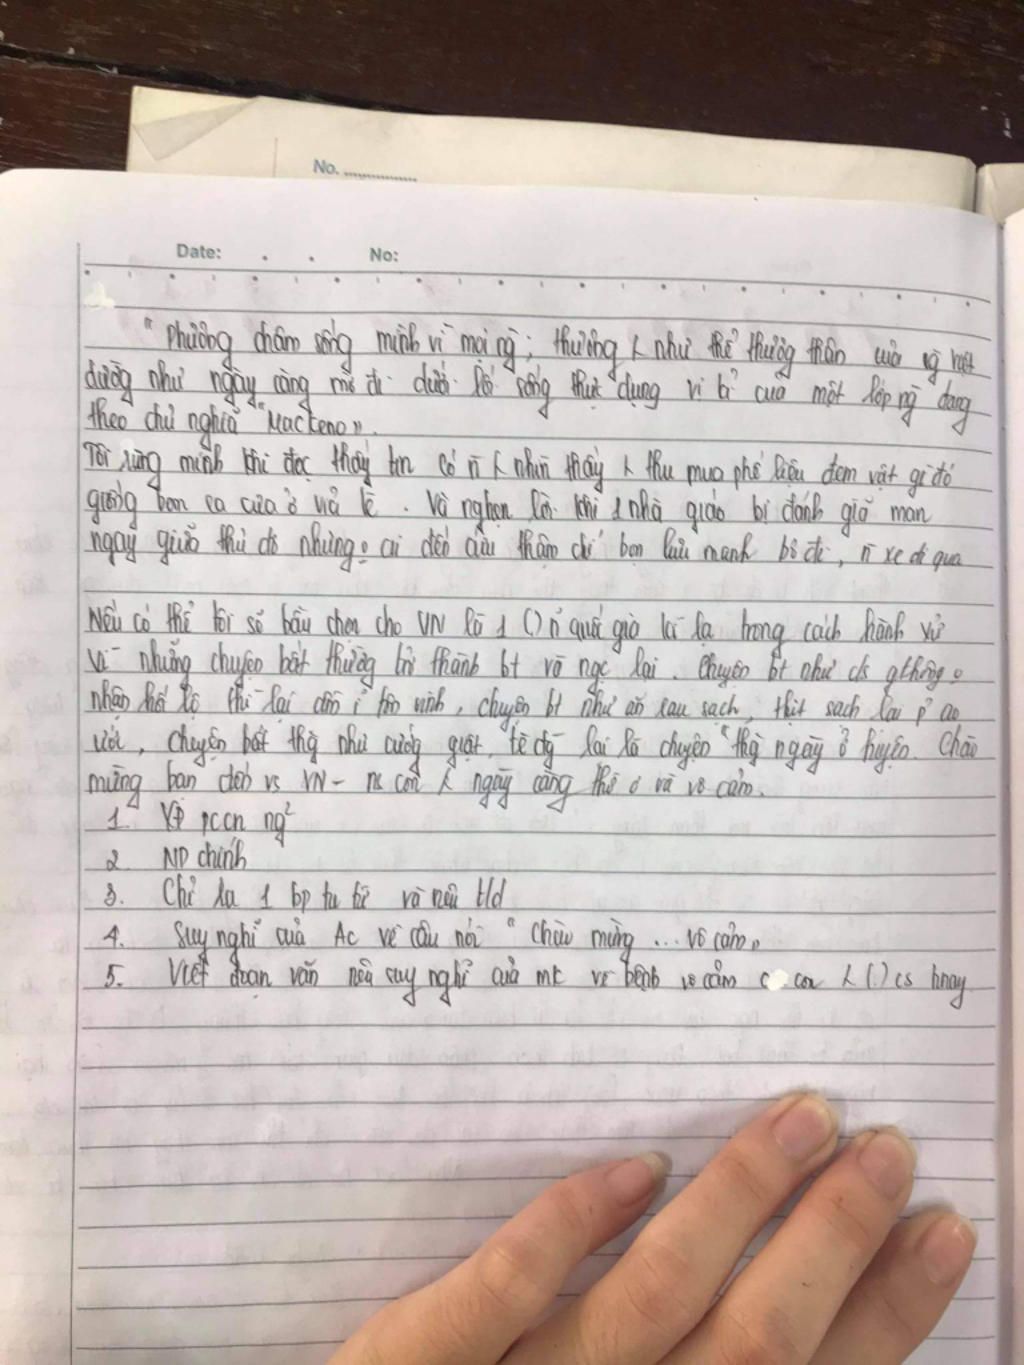 No. ................
Date: . . No:
" Phương châm sống mình vì mọi ng; thương ⅄ như thể thương thân của ng việt
dường như ngày càng mờ đi dưới lối sống thực dụng vị kỉ của một lớp ng đang
theo chủ nghĩa "Mackeno".
Tôi rùng mình khi đọc thấy tin có n ⅄ nhìn thấy ⅄ thu mua phế liệu đem vật gì đó
giống bom ra cưa ở vỉa lề. Và nghẹn lời khi 1 nhà giáo bị đánh giã man
ngay giữa thủ đô nhưng o ai đến cứu thậm chí bọn lưu manh bỏ đi, n xe đi qua
Nếu có thể tôi sẽ bầu chọn cho VN là 1 () n quốc gia kì lạ trong cách hành xử
Vì những chuyện bất thường trở thành bt và ngc lại. Chuyện bt như cs gthông o
nhận hối lộ thì lại đc tôn vinh, chuyện bt như ăn rau sạch, thịt sạch lại p ao
ước, chuyện bất thg như cướp giật, tệ lại là chuyện "thg ngày ở huyện. Chào
mừng bạn đến vs VN - ns con ⅄ ngày càng thờ ơ và vô cảm.
1. XĐ pccn ng²
2. ND chính
3. Chỉ ra 1 bp tu từ và nêu t/d
4. Suy nghĩ của Ac về câu nói "Chào mừng ... vô cảm"
5. Viết đoạn văn nêu suy nghĩ của mk về bệnh vô cảm c con ⅄ (.) cs hnay